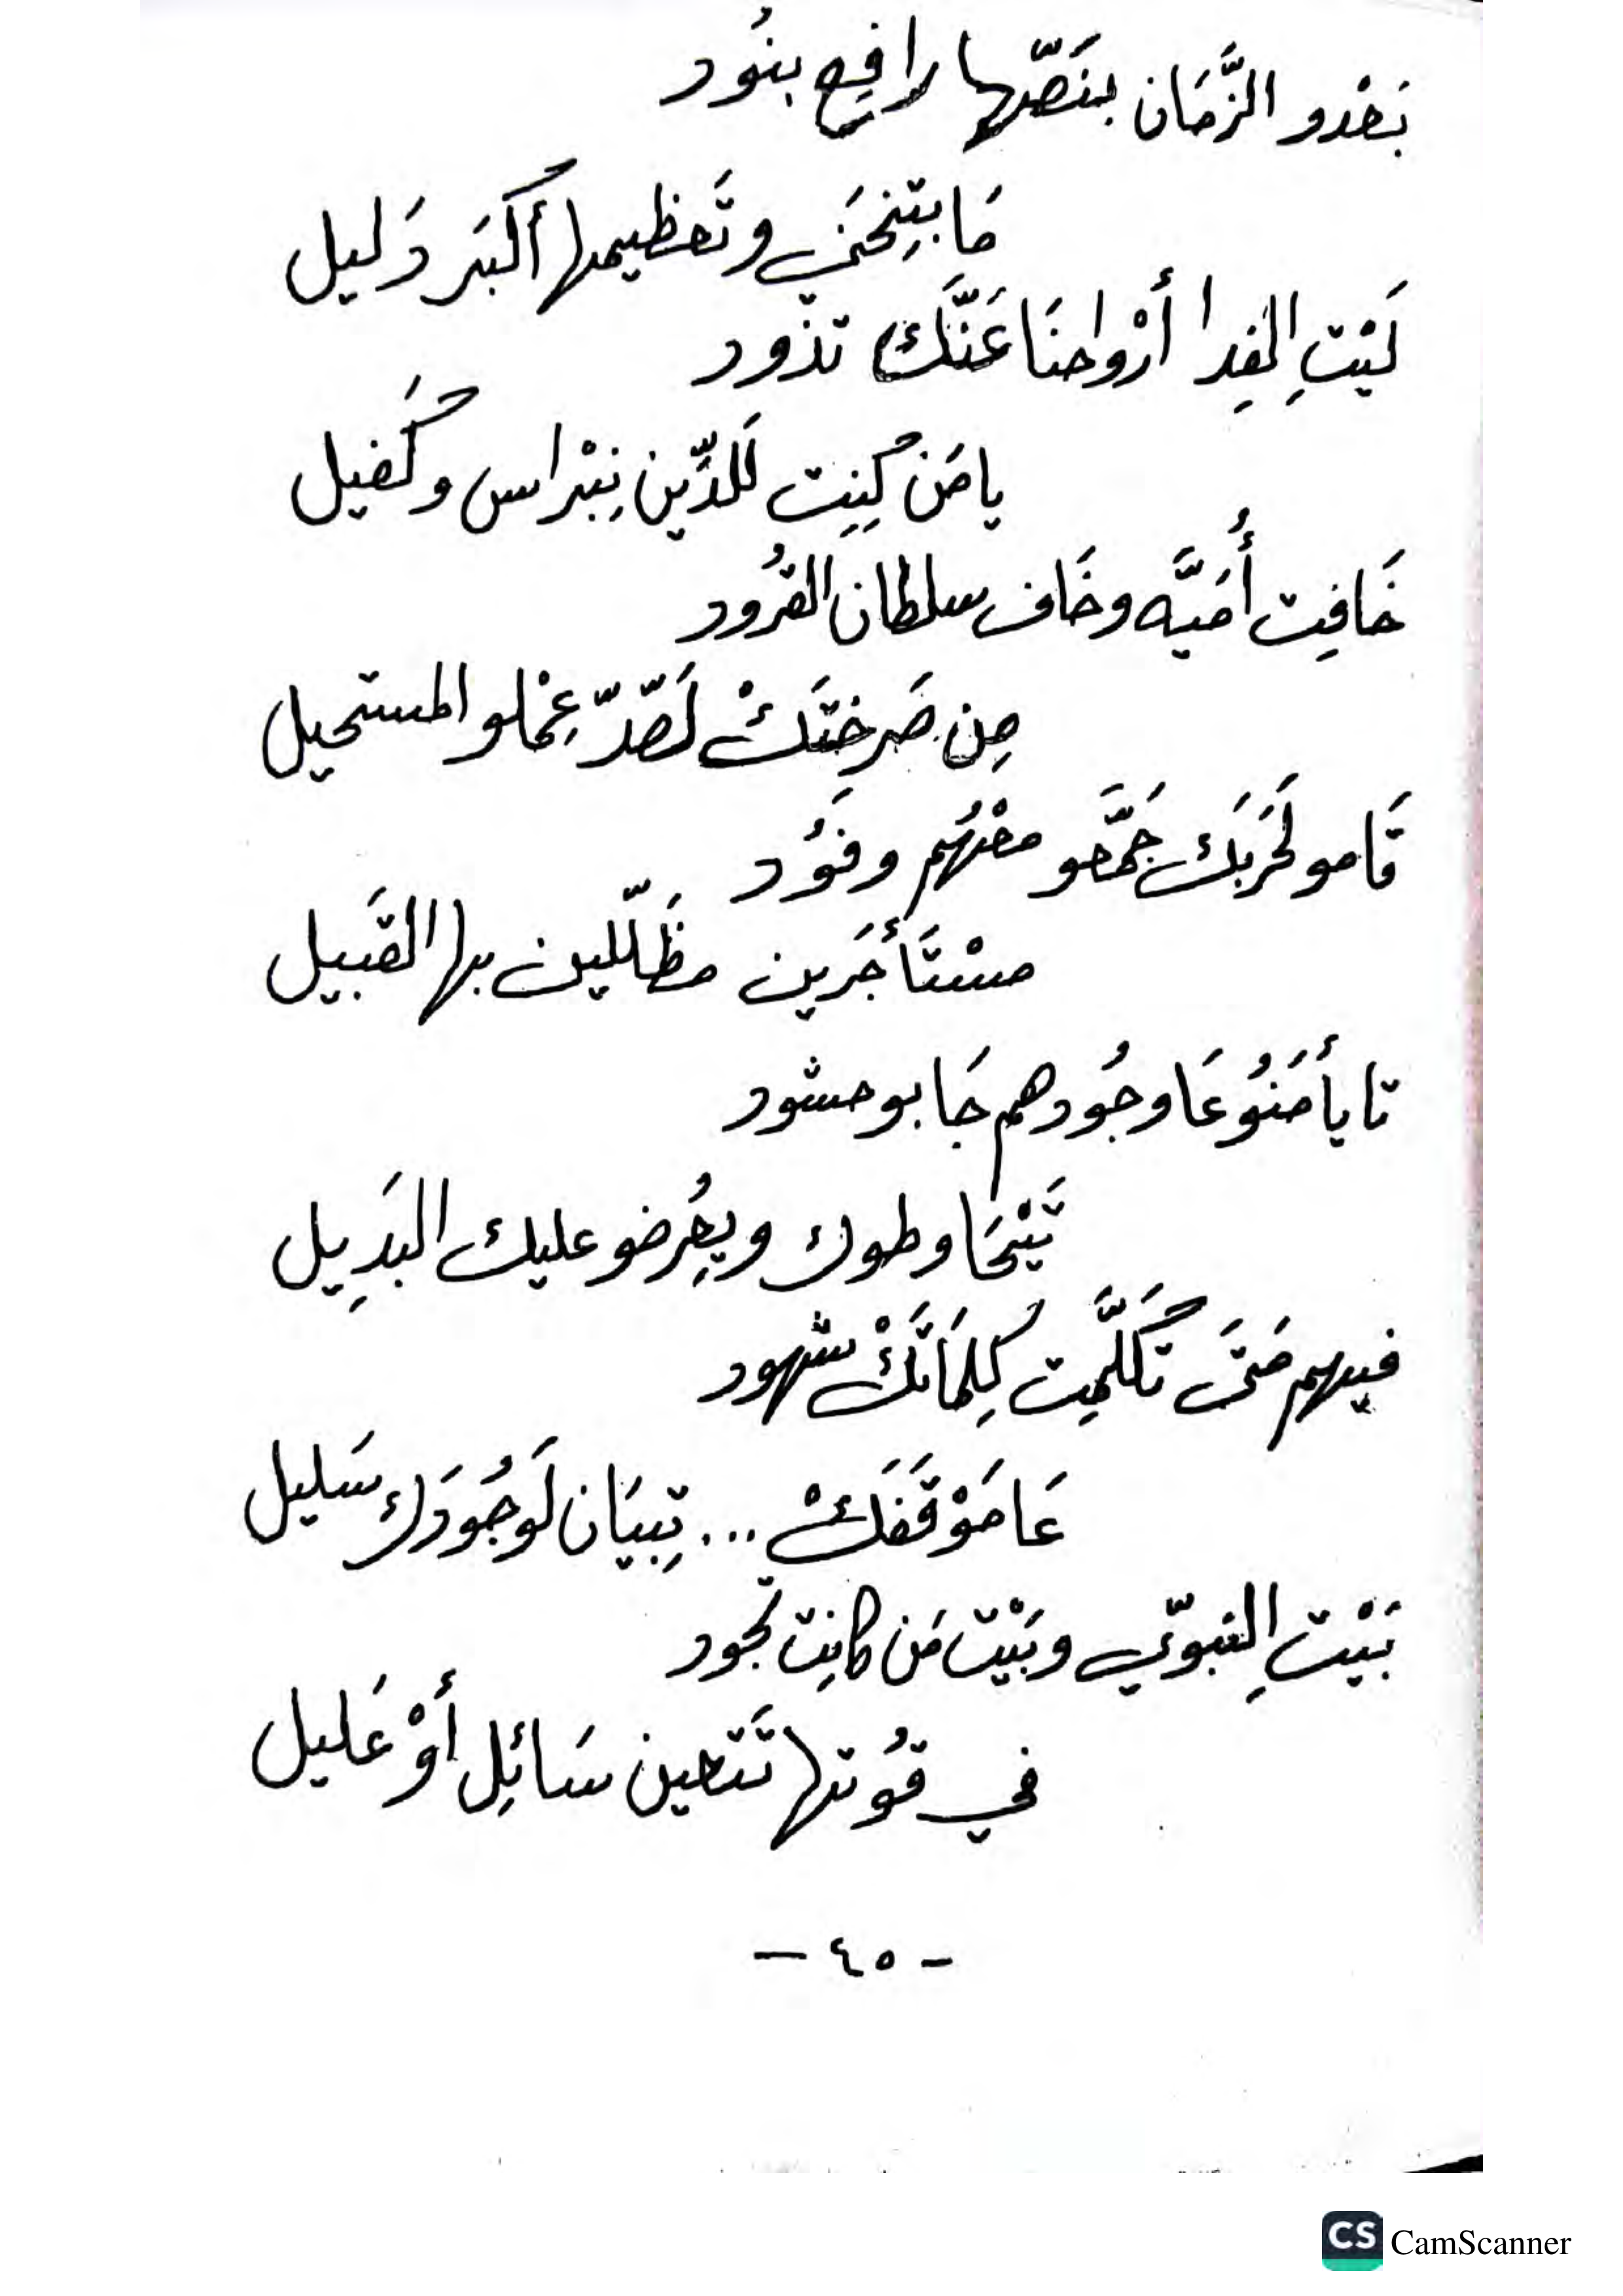 بَعْدو الزَّمَان بنَصّها رافِع بنُود
مَا بيِتِنحَني وتَعظيمها أكبَر دَليل
لَيْتِ الفِدا أرْواحنَا عَنَّك تذود
يا مَن كِنِت للدِّين نِبْراس وكَفيل
خَافِت أُمَيَّه وخَاف سلطان القرُود
مِن صَرختَكْ لَصَدّ عِمْلو المستحيل
قَامو لحَربَك جَمَّعو معْهُم وفوُد
مسْتَأجَرين مظَلّلين بها القَبيل
تا يأمَنُو عَا وجُودهم جَابو حشود
تَيْحَاوطوك ويعِرضو عليك البَدِيل
فيهم مَتَى تكَلَّمِت كِلمَاتَكْ شهود
عَا مَوْقَفَكْ ... تِبيَان لَوجُودَك سَليل
بَيْتِ النبوّي وبَيْت مَن كانِت تجود
في قوُتها تَتعين سَائِل أوْ عَليل
- ٤٥ -
CS CamScanner